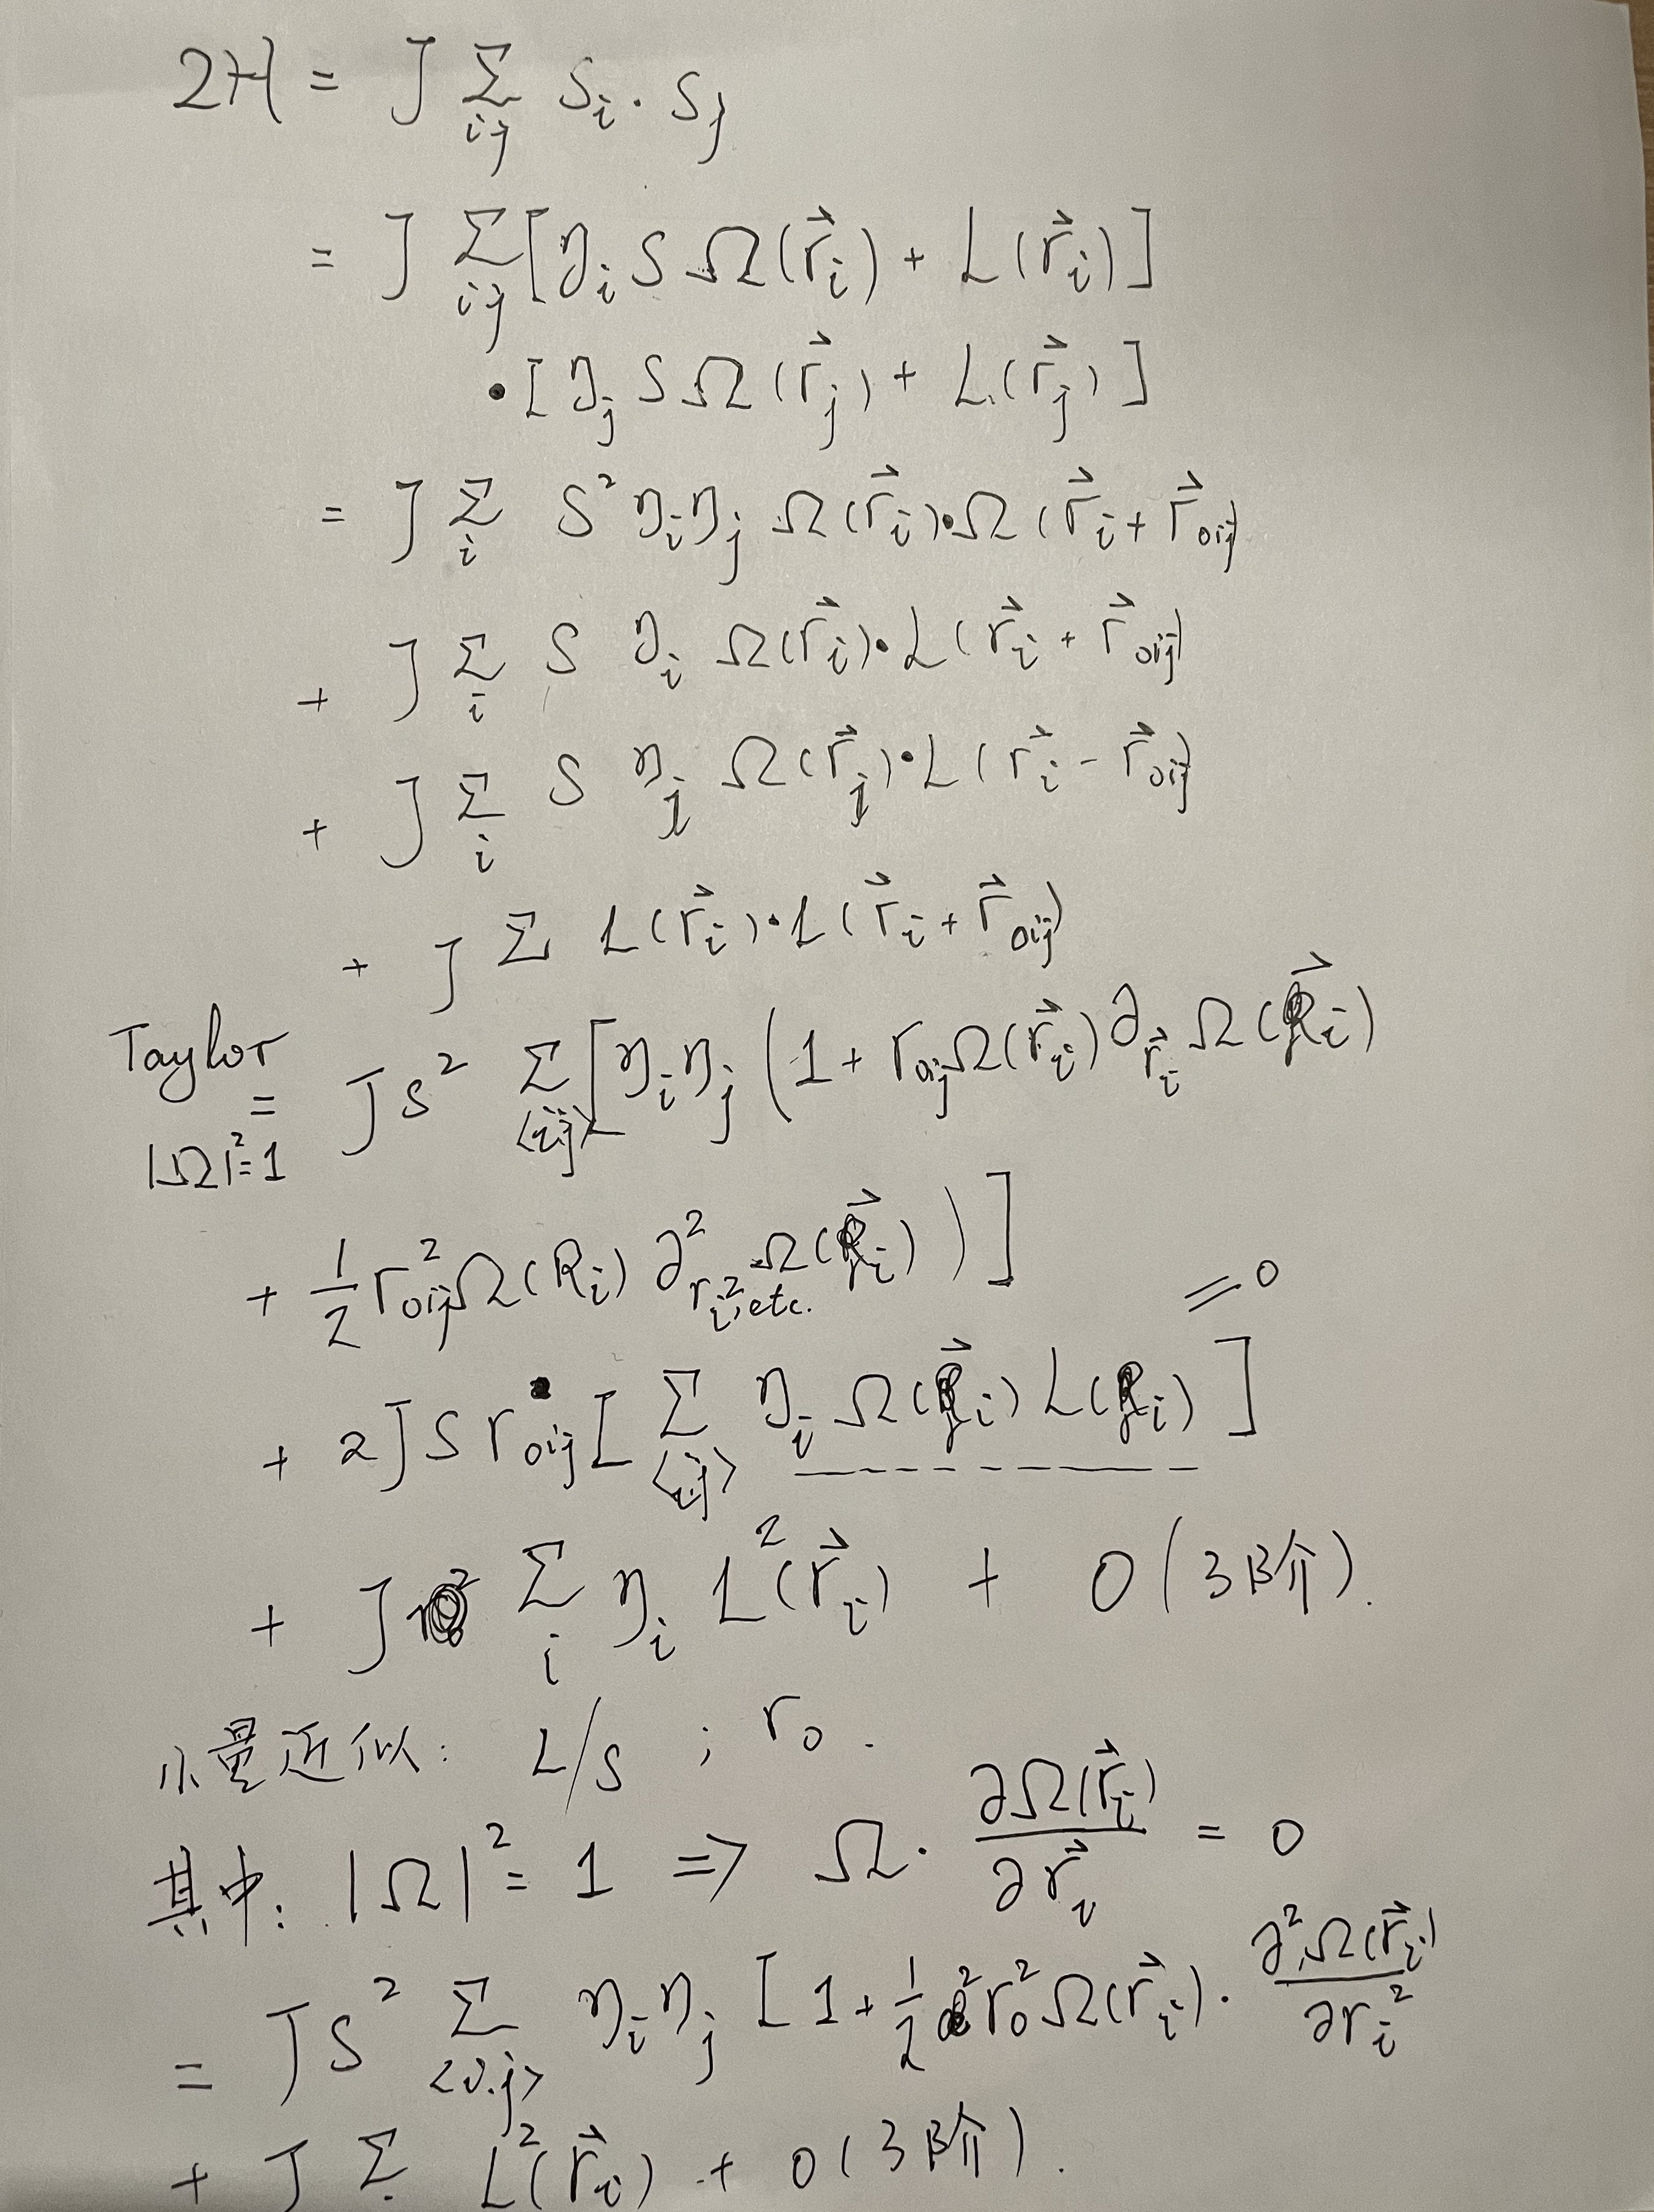 2H = J Σ_{ij} S_i · S_j
= J Σ_{ij} [η_i S Ω(r⃗_i) + L(r⃗_i)]
· [η_j S Ω(r⃗_j) + L(r⃗_j)]
= J Σ_i S² η_i η_j Ω(r⃗_i)·Ω(r⃗_i + r⃗_{0ij})
+ J Σ_i S η_i Ω(r⃗_i)·L(r⃗_i + r⃗_{0ij})
+ J Σ_i S η_j Ω(r⃗_j)·L(r⃗_i - r⃗_{0ij})
+ J Σ L(r⃗_i)·L(r⃗_i + r⃗_{0ij})
Taylor
|Ω|²=1
= J S² Σ_{<ij>} [η_i η_j (1 + r_{0ij} Ω(r⃗_i) ∂_{r⃗_i} Ω(R⃗_i)
+ 1/2 r²_{0ij} Ω(R_i) ∂²_{r_i², etc.} Ω(R⃗_i))]
+ 2 J S r_{0ij} [Σ_{<ij>} η_i Ω(R⃗_i) L(R_i)] = 0
+ J Σ_i η_i L²(r⃗_i) + O(3阶).
小量近似: L/S ; r_0 .
其中: |Ω|² = 1 => Ω · ∂Ω(r⃗_i)/∂r⃗_i = 0
= J S² Σ_{<i.j>} η_i η_j [1 + 1/2 r_0² Ω(r⃗_i) · ∂²Ω(r⃗_i)/∂r_i²
+ J Σ L²(r⃗_i) + O(3阶).